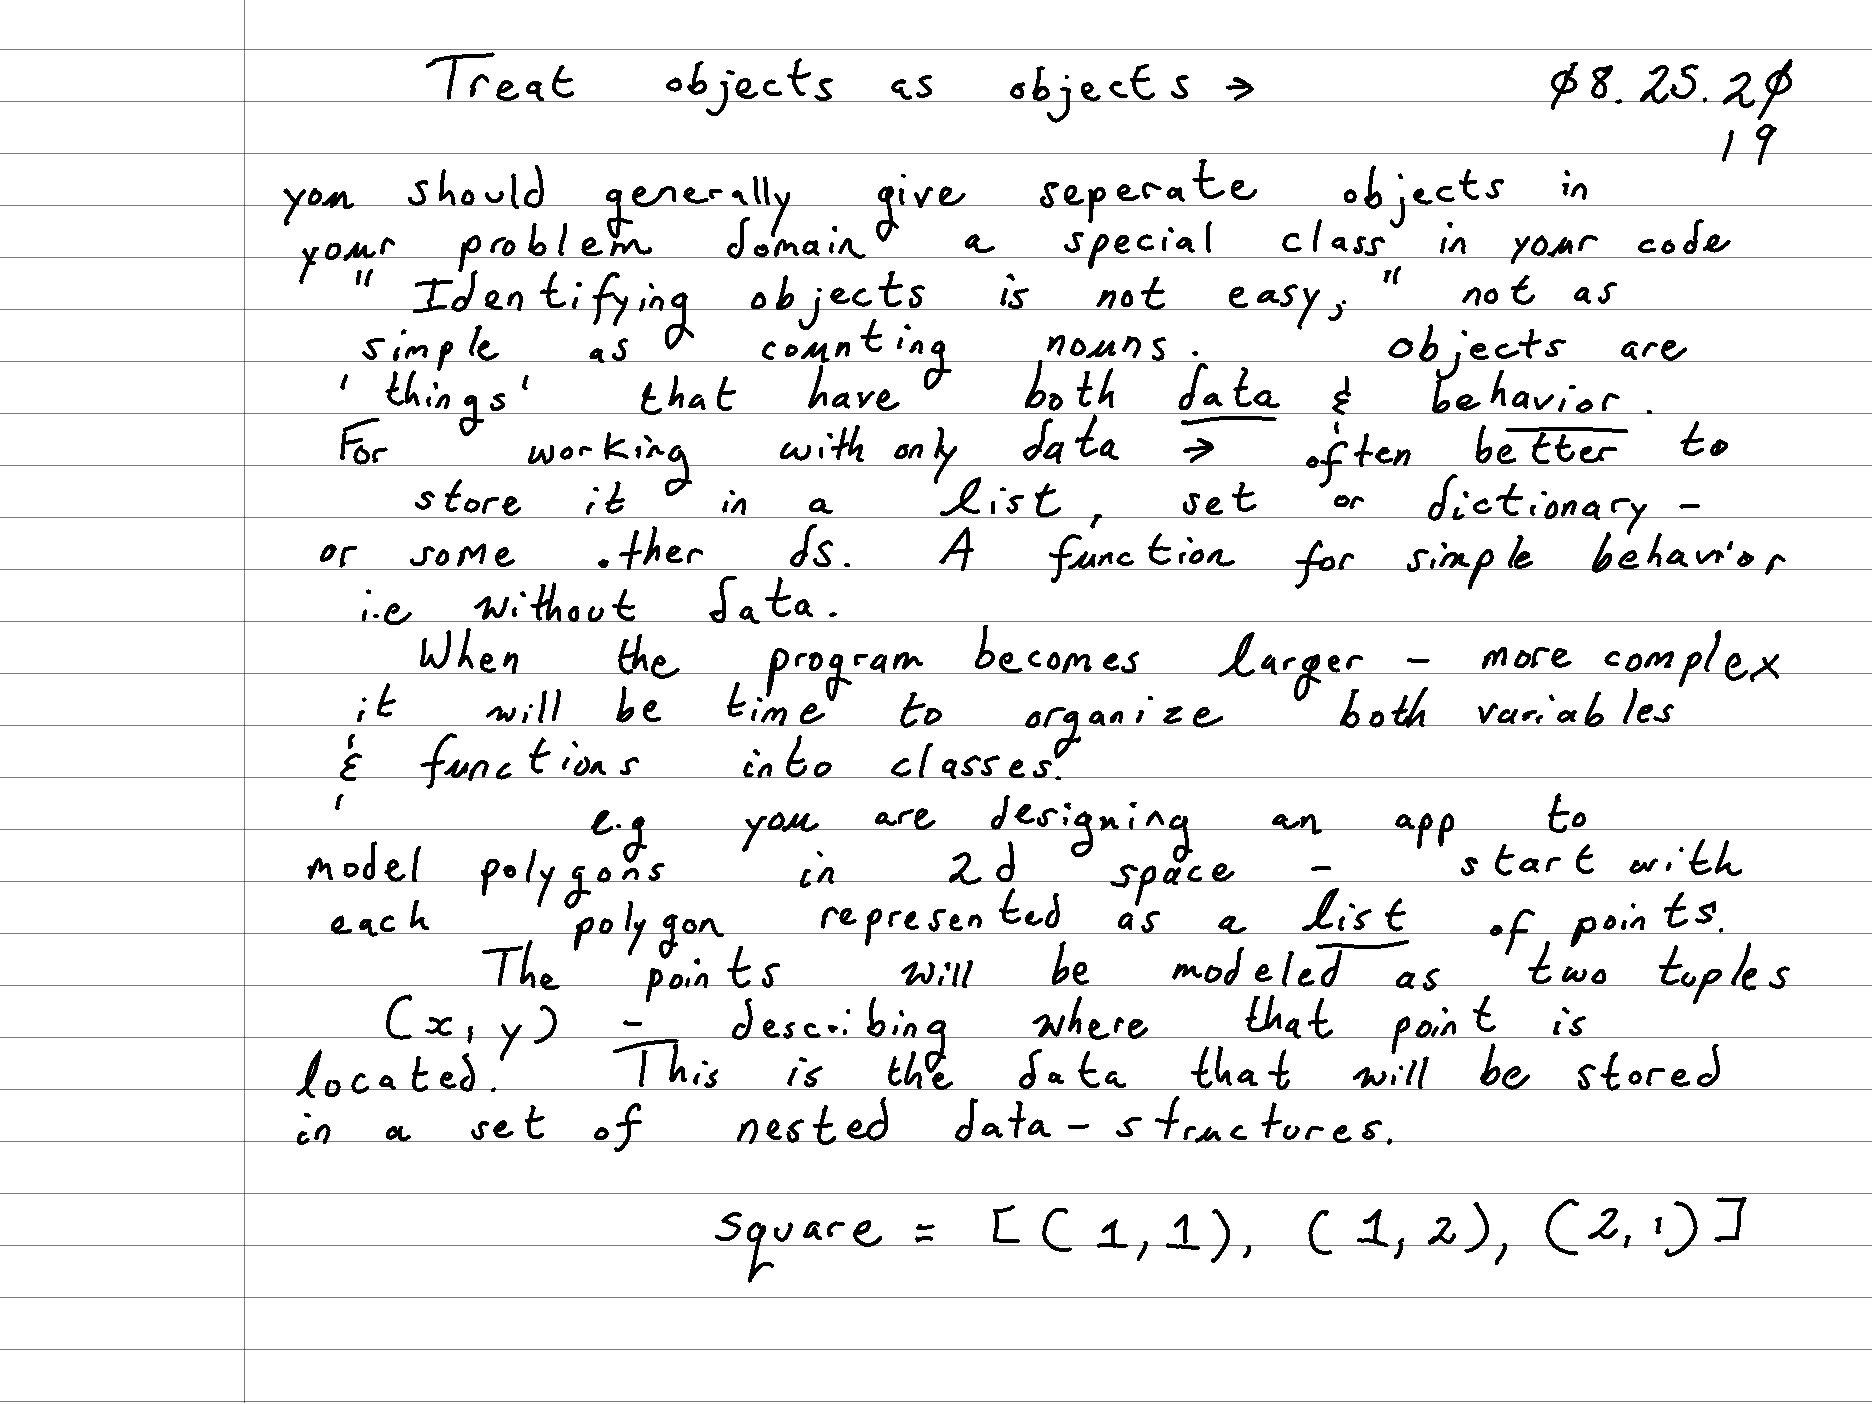 Treat objects as objects → 08.25.20
19
you should generally give seperate objects in
your problem domain a special class in your code
"Identifying objects is not easy;" not as
simple as counting nouns. objects are
'things' that have both data & behavior.
For working with only data → often better to
store it in a list, set or dictionary -
or some other ds. A function for simple behavior
i.e without data.
When the program becomes larger - more complex
it will be time to organize both variables
& functions into classes.
e.g you are designing an app to
model polygons in 2d space - start with
each polygon represented as a list of points.
The points will be modeled as two tuples
(x, y) - describing where that point is
located. This is the data that will be stored
in a set of nested data-structures.
square = [(1,1), (1,2), (2,1)]